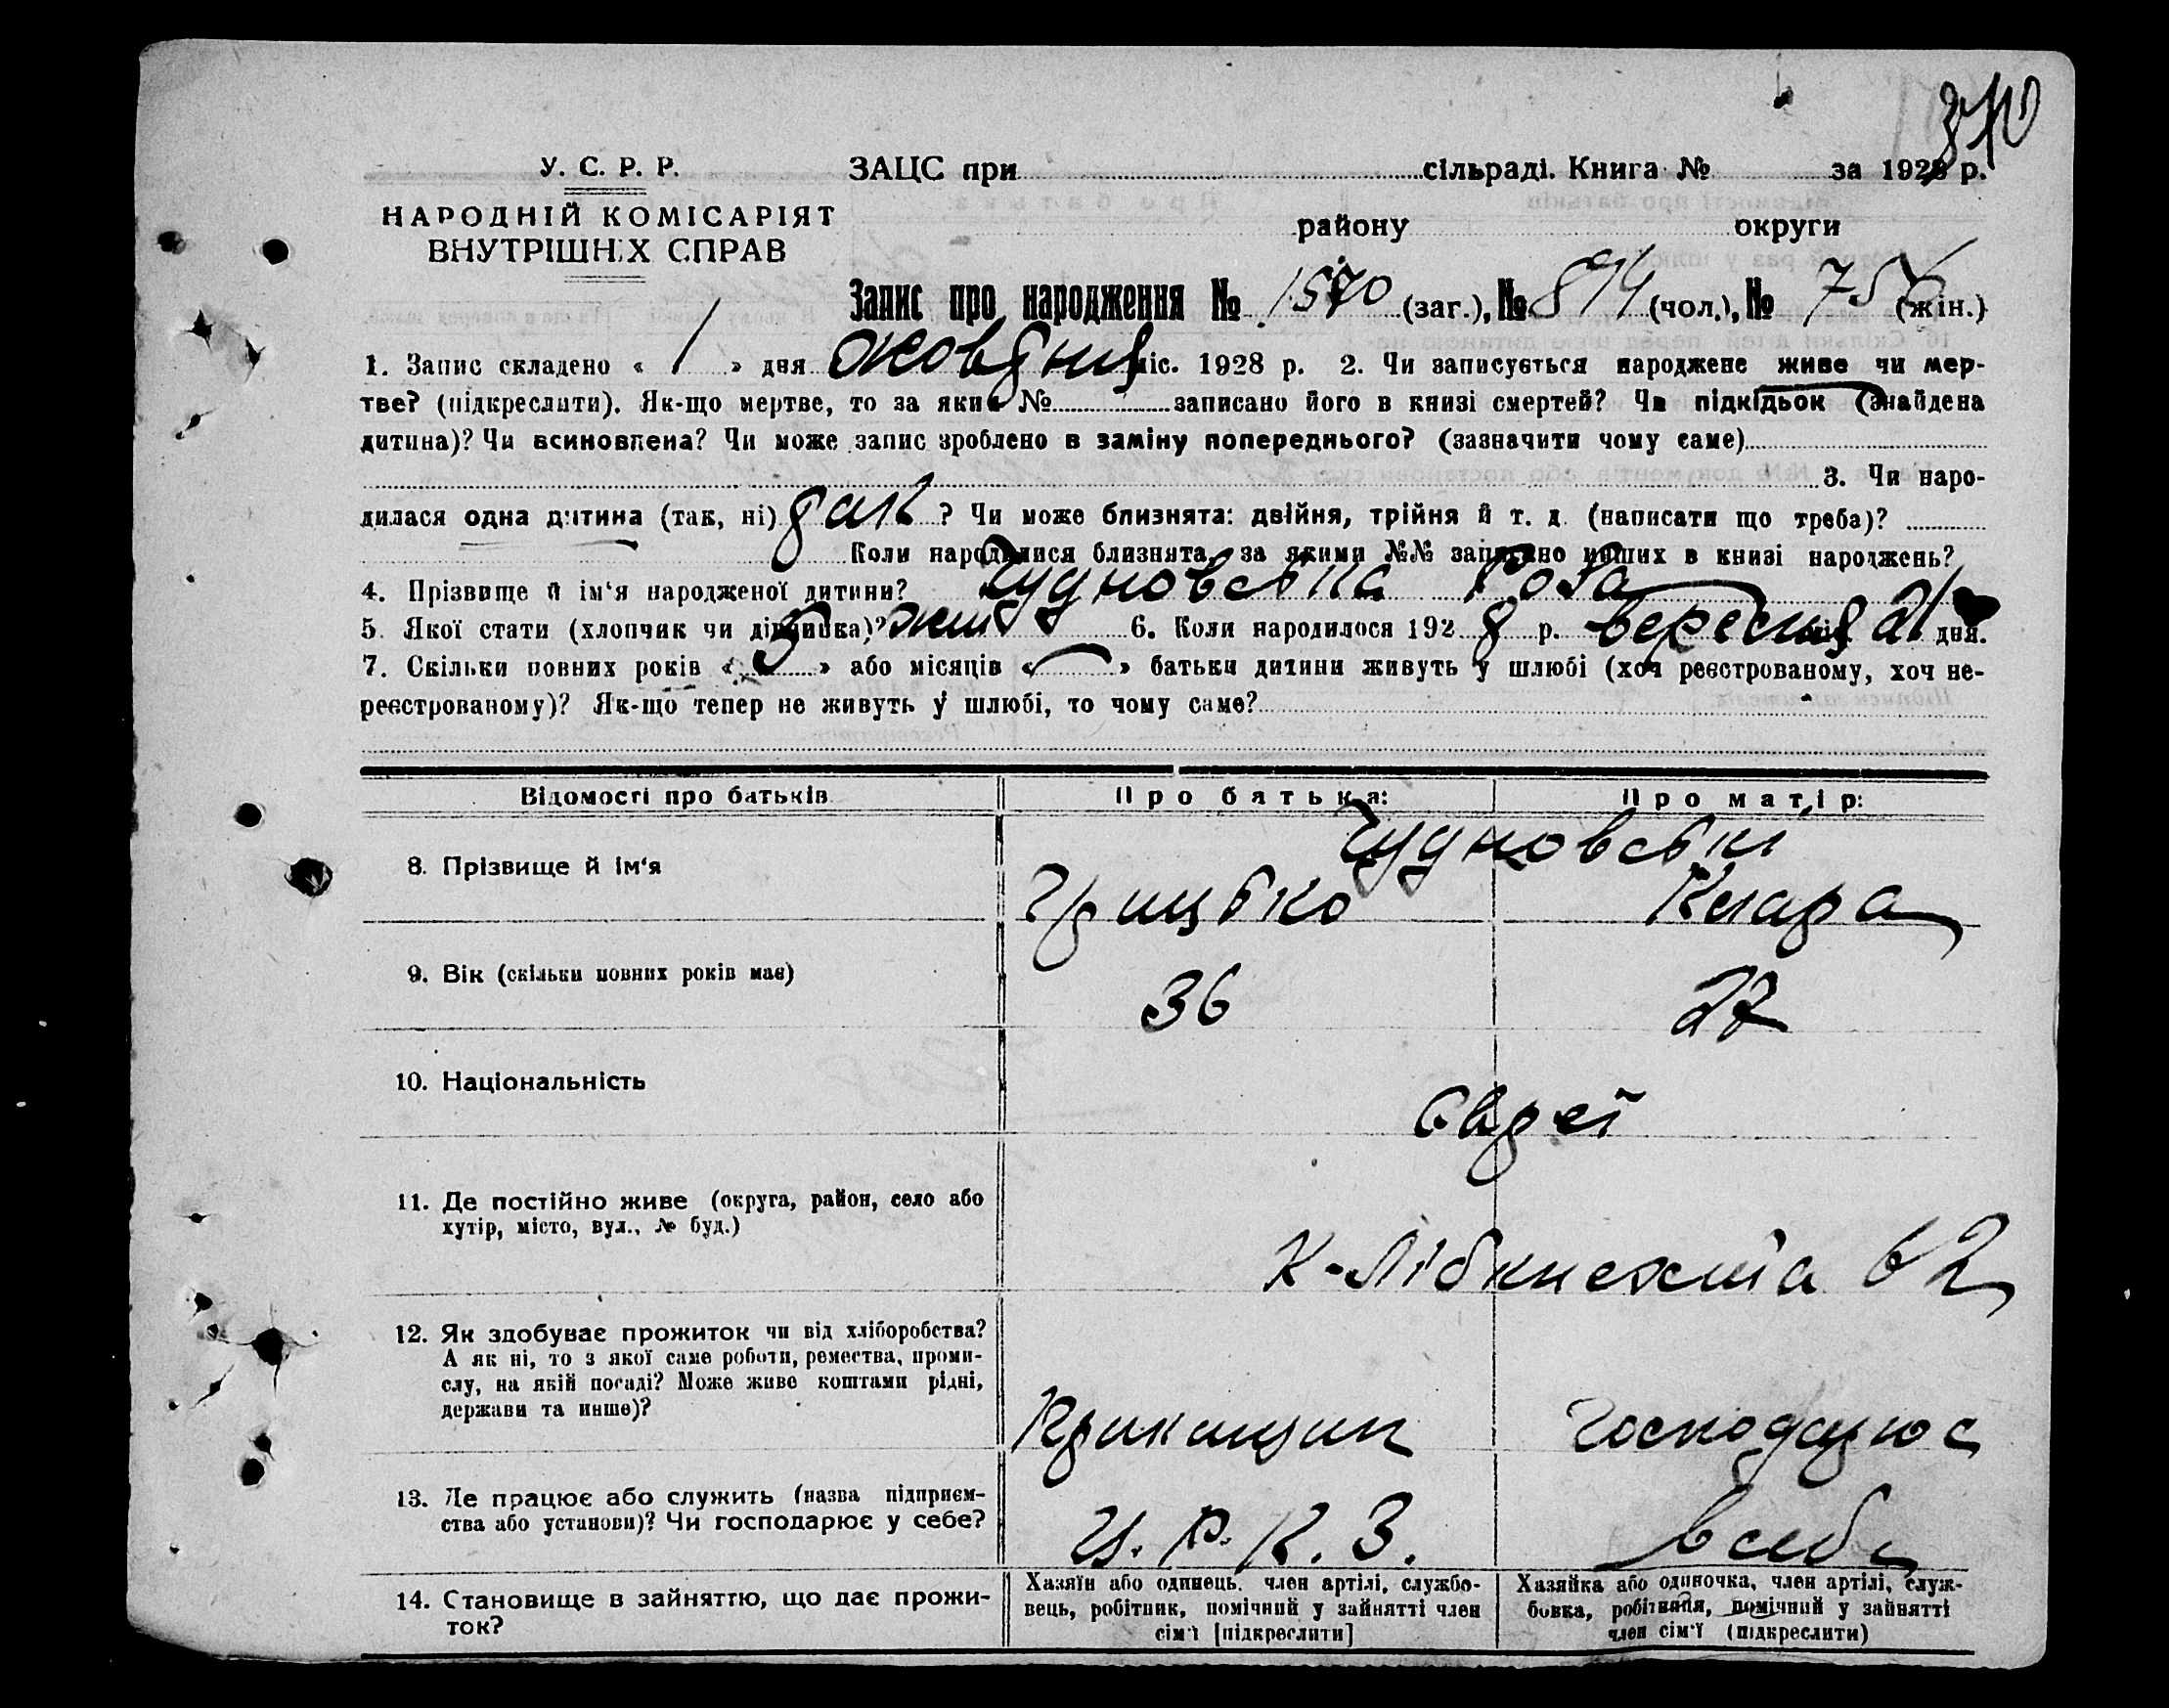 370
У. С. Р. Р. ЗАЦС при сільраді. Книга № за 1928 р.
НАРОДНІЙ КОМІСАРІЯТ
району округи
ВНУТРІШНІХ СПРАВ
Запис про народження № 1570 (заг.), № 814 (чол.), № 756 (жін.)
1. Запис складено « 1 » дня жовтня міс. 1928 р. 2. Чи записується народжене живе чи мер-
тве? (підкреслити). Як-що мертве, то за яким № записано його в книзі смертей? Чи підкідьок (знайдена
дитина)? Чи всиновлена? Чи може запис зроблено в заміну попереднього? (зазначити чому саме)
3. Чи наро-
дилася одна дитина (так, ні) так ? Чи може близнята: двійня, трійня й т. д. (написати що треба)?
Коли народилися близнята, за якими №№ записано инших в книзі народжень?
4. Прізвище й ім‘я народженої дитини? Чудновська Роза
5. Якої стати (хлопчик чи дівчинка)? жін 6. Коли народилося 1928 р. вересня 21 дня.
7. Скільки повних років « 5 » або місяців « — » батьки дитини живуть у шлюбі (хоч реєстрованому, хоч не-
реєстрованому)? Як-що тепер не живуть у шлюбі, то чому саме?
Відомості про батьків Про батька: Про матір:
Чудновські
8. Прізвище й ім‘я Грицько Клара
9. Вік (скільки повних років має) 36 27
10. Національність євреї
11. Де постійно живе (округа, район, село або
хутір, місто, вул., № буд.)
К-Лібкнехта 62
12. Як здобуває прожиток чи від хліборобства?
А як ні, то з якої саме роботи, ремества, проми-
слу, на якій посаді? Може живе коштами рідні,
держави та инше)?
Прикащик Господарює
13. Де працює або служить (назва підприєм-
ства або установи)? Чи господарює у себе?
Ц. Р. К. З. в себе
14. Становище в зайняттю, що дає прожи-
ток?
Хазяїн або одинець, член артілі, службо-
вець, робітник, помічний у зайнятті член
сім‘ї [підкреслити]
Хазяйка або одиночка, член артілі, служ-
бовка, робітниця, помічний у зайнятті
член сім‘ї (підкреслити)